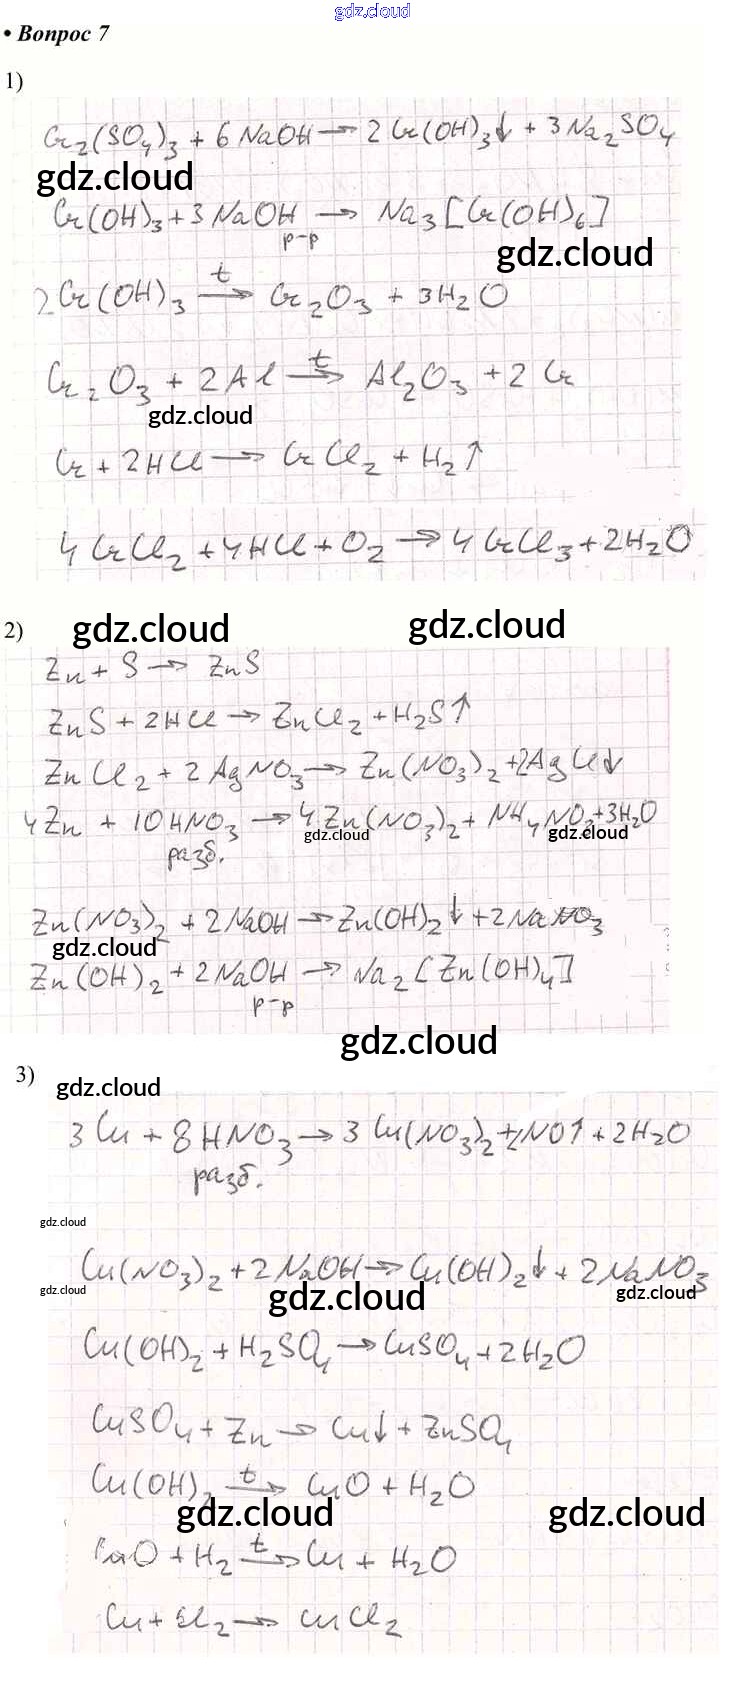 gdz.cloud
• Вопрос 7
1)
Cr₂(SO₄)₃ + 6 NaOH → 2 Cr(OH)₃↓ + 3 Na₂SO₄
gdz.cloud
Cr(OH)₃ + 3 NaOH → Na₃[Cr(OH)₆]
р-р
gdz.cloud
2 Cr(OH)₃ →ᵗ Cr₂O₃ + 3H₂O
Cr₂O₃ + 2Al →ᵗ Al₂O₃ + 2 Cr
gdz.cloud
Cr + 2HCl → CrCl₂ + H₂↑
4 CrCl₂ + 4HCl + O₂ → 4 CrCl₃ + 2H₂O
2)
gdz.cloud gdz.cloud
Zn + S → ZnS
ZnS + 2HCl → ZnCl₂ + H₂S↑
ZnCl₂ + 2 AgNO₃ → Zn(NO₃)₂ + 2AgCl↓
4Zn + 10HNO₃ → 4 Zn(NO₃)₂ + NH₄NO₃ + 3H₂O
gdz.cloud gdz.cloud
разб.
Zn(NO₃)₂ + 2NaOH → Zn(OH)₂↓ + 2NaNO₃
gdz.cloud
Zn(OH)₂ + 2NaOH → Na₂[Zn(OH)₄]
р-р
gdz.cloud
3)
gdz.cloud
3 Cu + 8HNO₃ → 3 Cu(NO₃)₂ + 2NO↑ + 2H₂O
разб.
gdz.cloud
Cu(NO₃)₂ + 2NaOH → Cu(OH)₂↓ + 2NaNO₃
gdz.cloud gdz.cloud gdz.cloud
Cu(OH)₂ + H₂SO₄ → CuSO₄ + 2H₂O
CuSO₄ + Zn → Cu↓ + ZnSO₄
Cu(OH)₂ →ᵗ CuO + H₂O
gdz.cloud gdz.cloud
CuO + H₂ →ᵗ Cu + H₂O
Cu + Cl₂ → CuCl₂